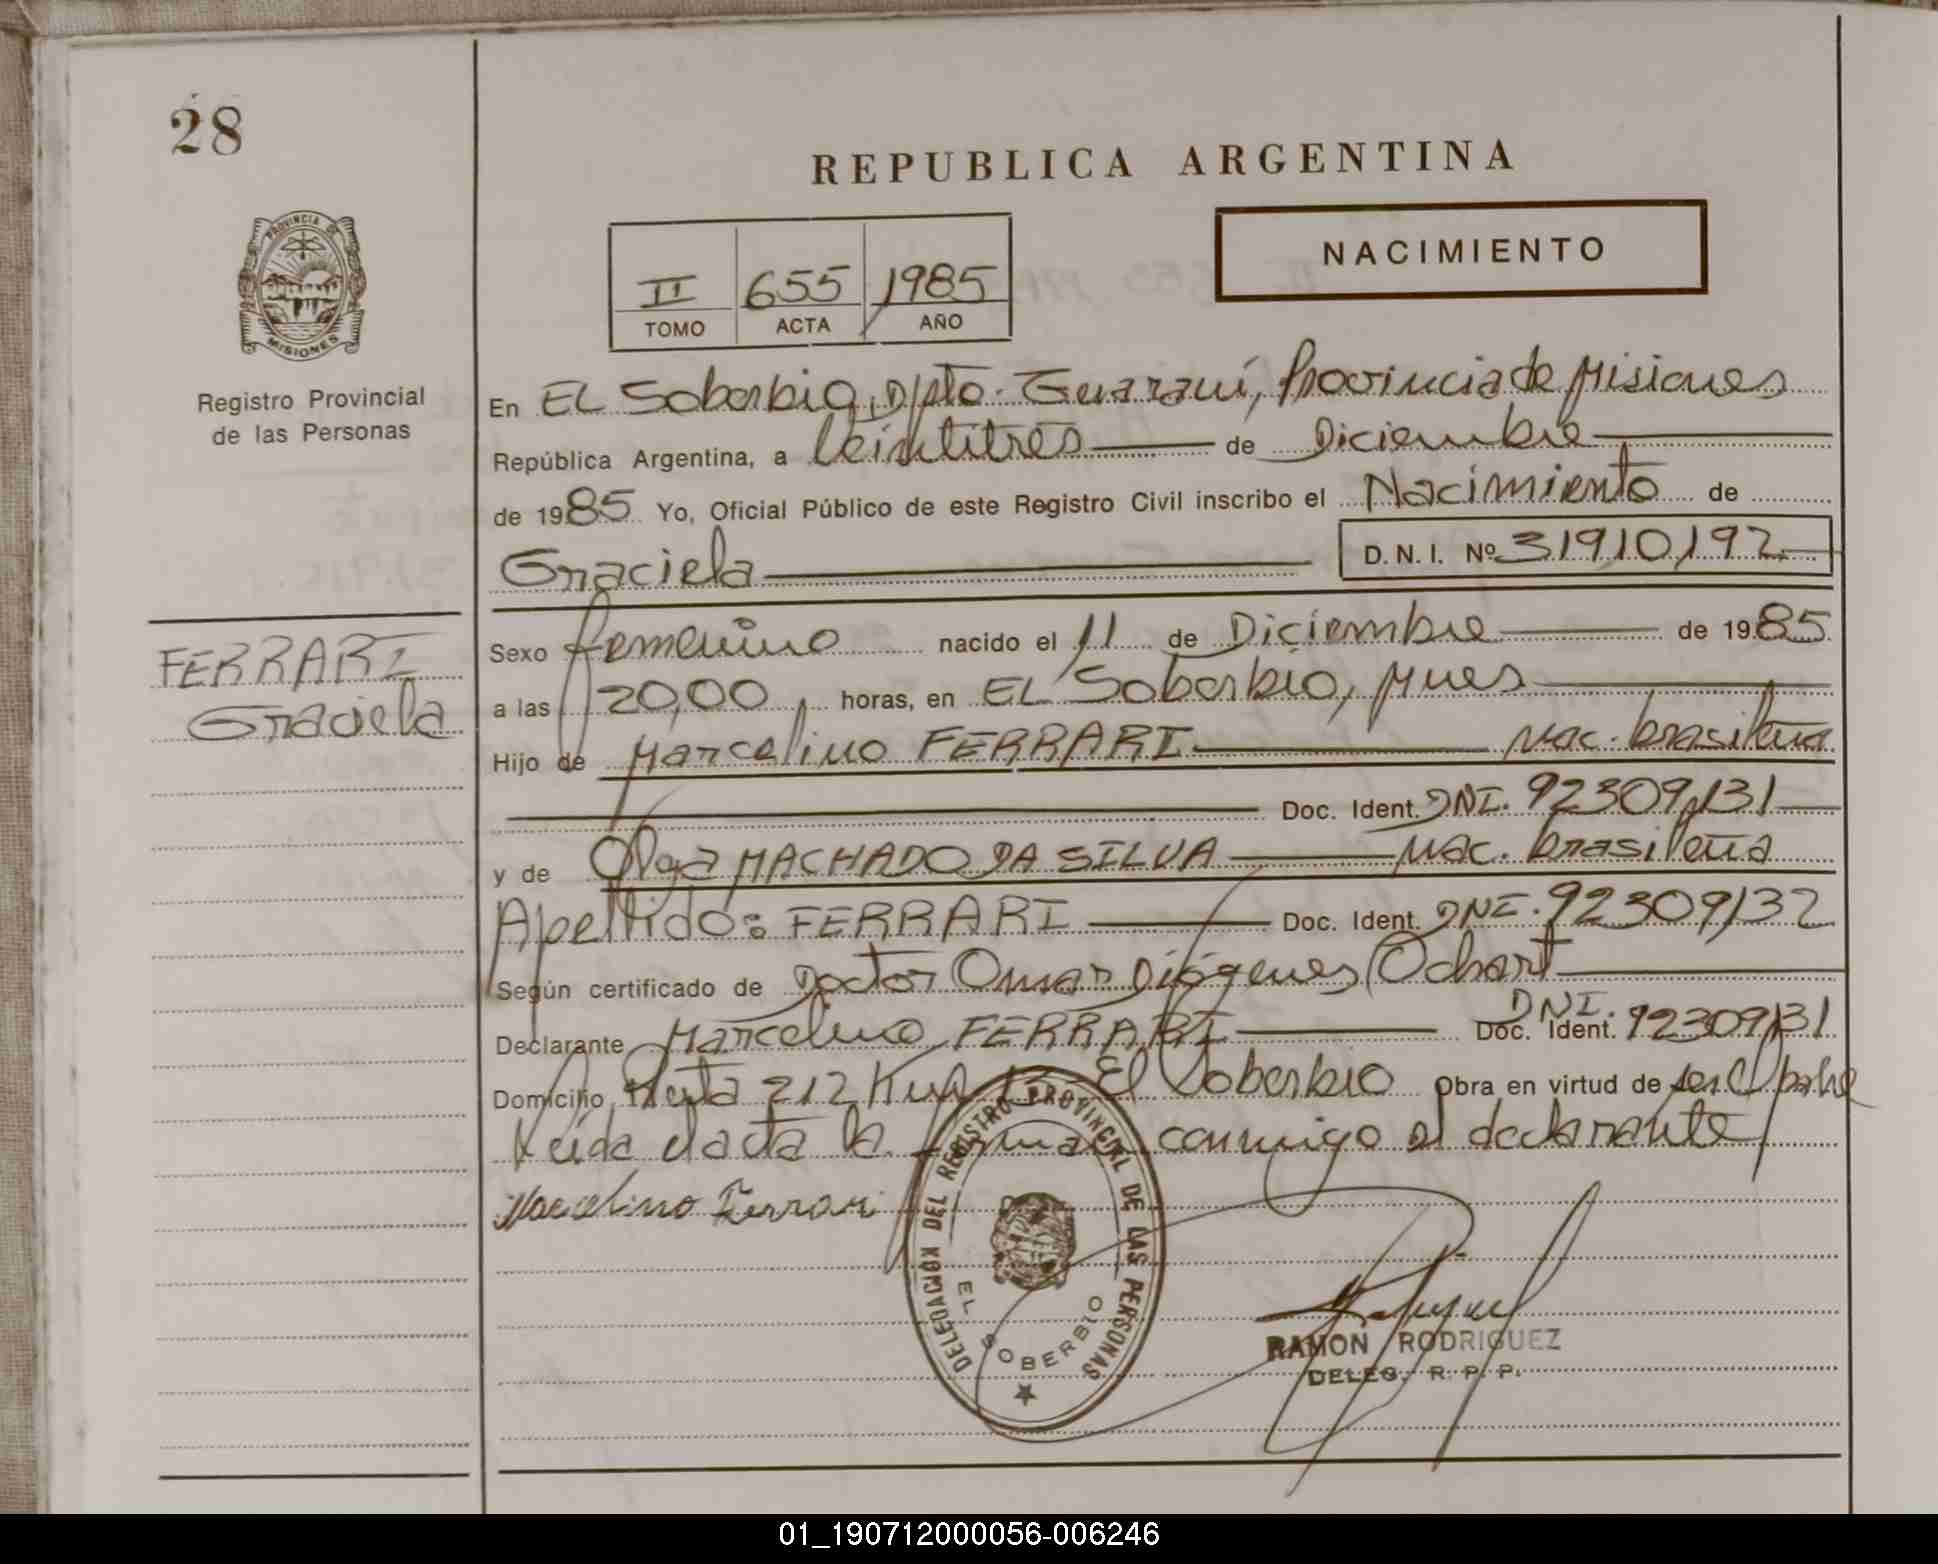 28
REPUBLICA ARGENTINA
PROVINCIA DE
MISIONES
Registro Provincial
de las Personas
II 655 1985
TOMO ACTA AÑO
NACIMIENTO
En EL Soberbio, Dpto. Guaraní, Provincia de Misiones
República Argentina, a Veintitres de Diciembre
de 1985 Yo, Oficial Público de este Registro Civil inscribo el Nacimiento de
Graciela D.N.I. Nº 31910192
FERRARI
Graciela
Sexo femenino nacido el 11 de Diciembre de 1985
a las 20,00 horas, en EL Soberbio, Mnes
Hijo de Marcelino FERRARI Nac. brasileña
Doc. Ident. DNI. 92309131
y de Olga MACHADO DA SILVA Nac. brasileña
Apellido: FERRARI Doc. Ident. DNI. 92309132
Según certificado de Doctor Omar Diógenes Ochart
Declarante Marcelino FERRARI Doc. Ident. DNI. 92309131
Domicilio Ruta 212 Km El Soberbio Obra en virtud de ser el padre
Leída el acta la firma conmigo el declarante
Marcelino Ferrari
DELEGACION DEL REGISTRO PROVINCIAL DE LAS PERSONAS
EL SOBERBIO
RAMON RODRIGUEZ
DELEG. R. P. P.
01_190712000056-006246